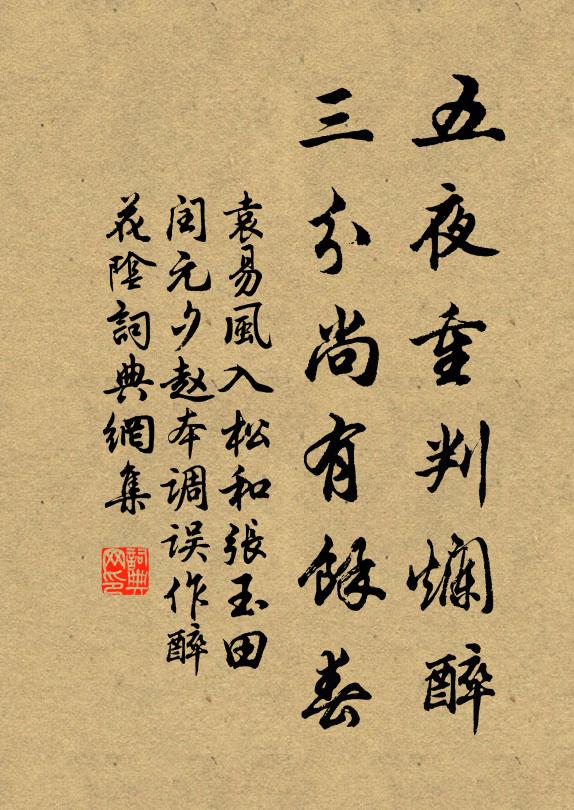 五夜重判爛醉
三分尚有餘春
袁易風入松和張玉田
閏元夕赵本调误作醉
花陰詞典網集
詞典网印